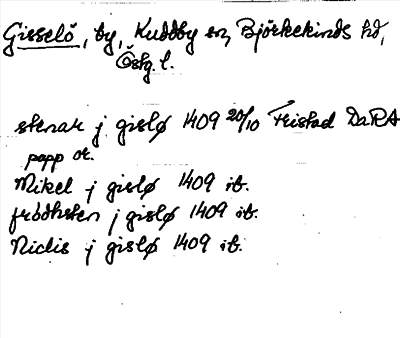 Gisselö, by, Kuddby sn, Björkekinds hd,
Östg. l.
stenar j gislø 1409 20/10 Fristad DaRA
papp or.
Mikel j gislø 1409 ib.
frödhsten j gislø 1409 ib.
Niclis j gislø 1409 ib.